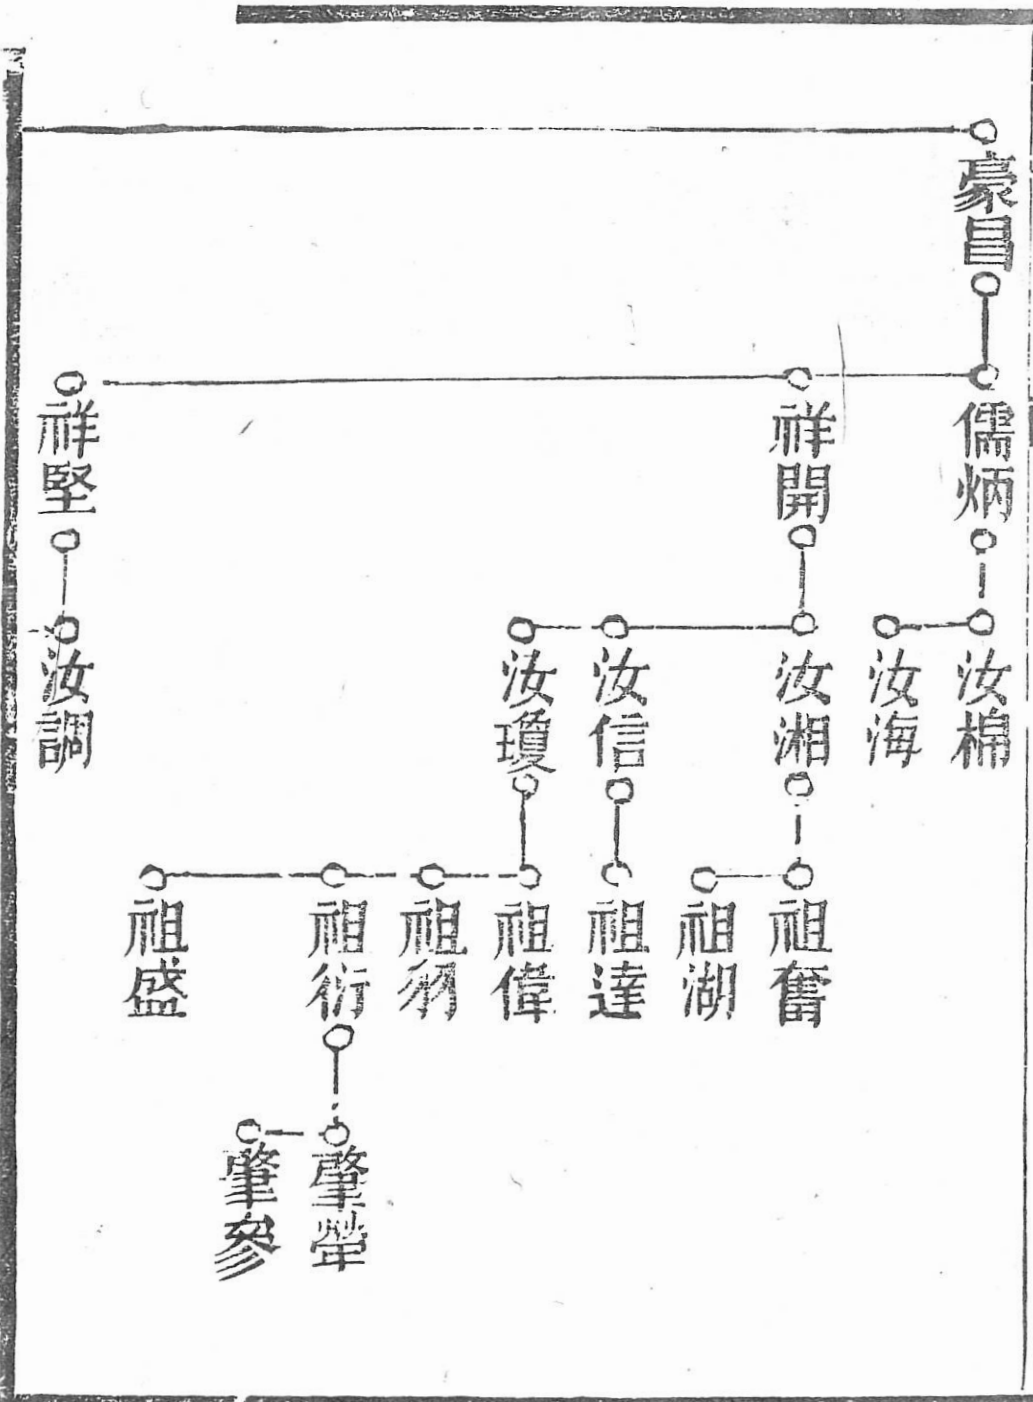 豪昌
儒炳
祥開
祥堅
汝棉
汝海
汝湘
汝信
汝瓊
汝調
祖奮
祖湖
祖達
祖偉
祖
祖衍
祖盛
肇
肇參